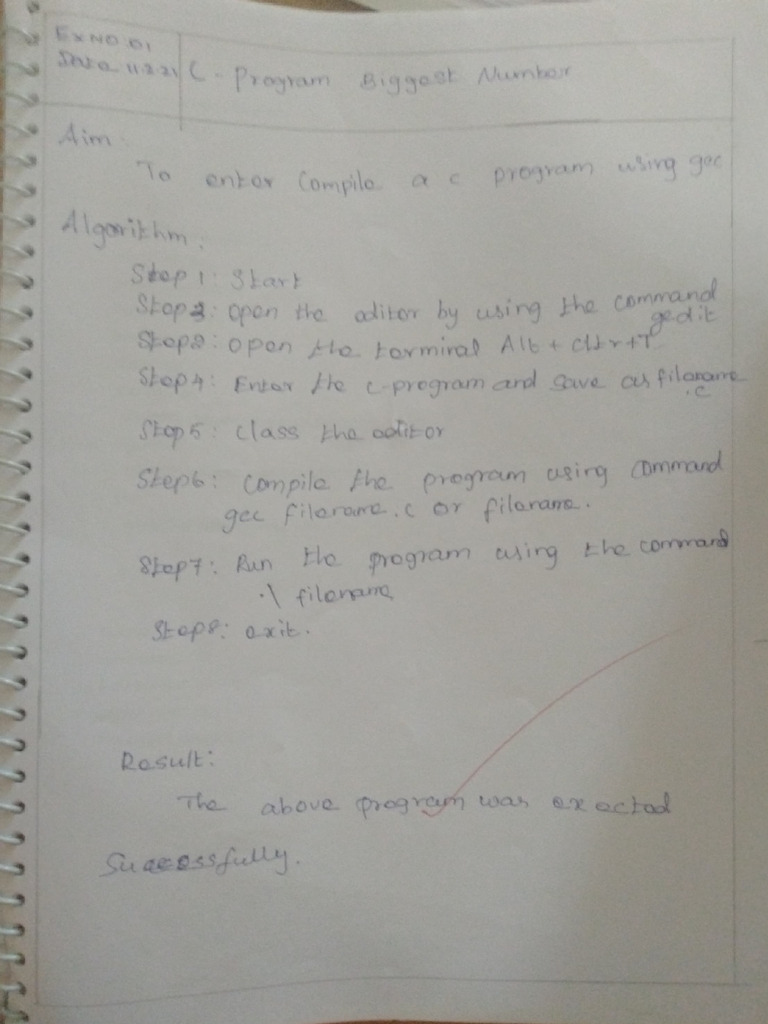 EXNO 01
Date 11.2.21
C - Program Biggest Number
Aim:
To enter Compile a c program using gcc
Algorithm:
Step 1: Start
Step 2: open the editor by using the command
gedit
Step3: open the terminal Alt + cltr+T
Step 4: Enter the c-program and save as filename
.c
Step 5: Class the editor
Step6: compile the program using command
gcc filename.c or filename.
Step7: Run the program using the command
.\ filename
Step8: exit.
Result:
The above program was exected
Successfully.